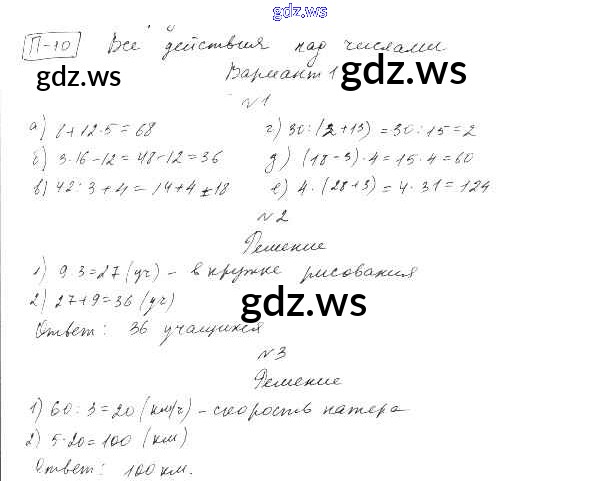 gdz.ws
П-10 Все действия над числами
gdz.ws Вариант 1 gdz.ws
№1
а) 1+12·5=68 г) 30:(2+13)=30:15=2
б) 3·16-12=48-12=36 д) (18-3)·4=15·4=60
в) 42:3+4=14+4=18 е) 4·(28+3)=4·31=124
№2
Решение
1) 9·3=27 (уч) - в кружке рисования
2) 27+9=36 (уч) gdz.ws
Ответ: 36 учащихся
№3
Решение
1) 60:3=20 (км/ч) - скорость катера
2) 5·20=100 (км)
Ответ: 100 км.
gdz.ws